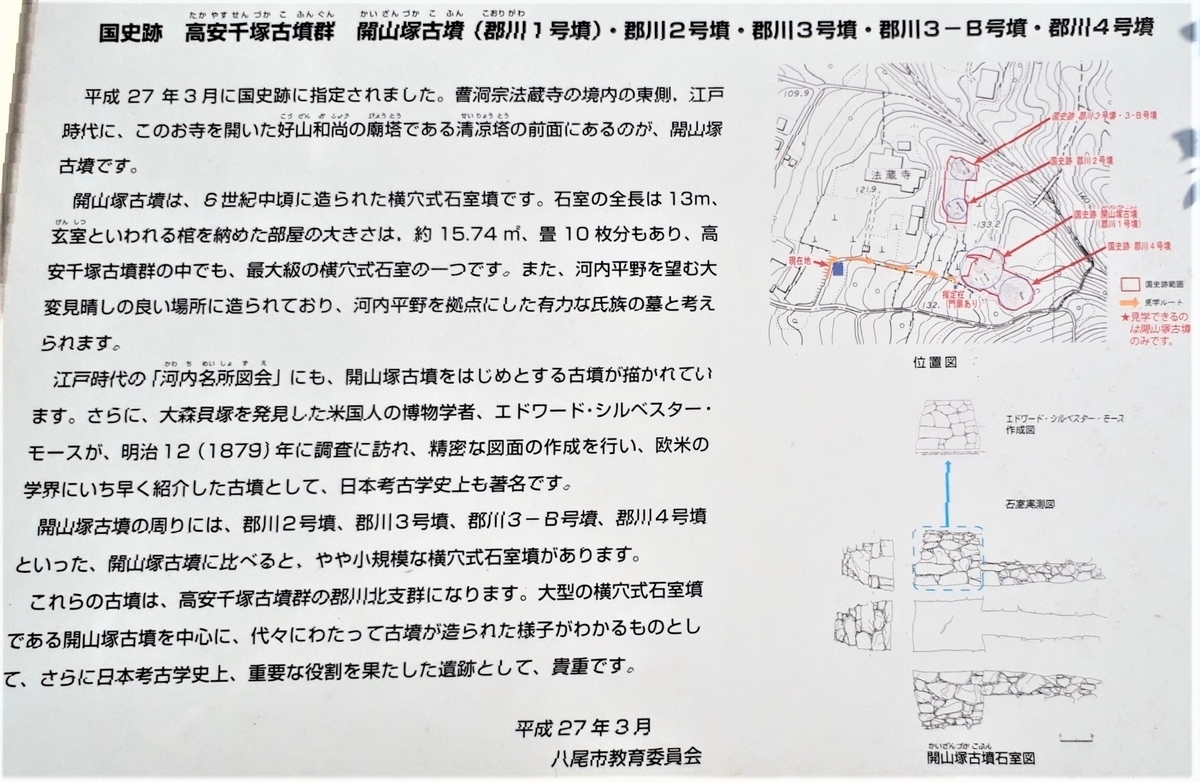 たかやすせんづか こ ふんぐん かいざんづか こ ふん こおりがわ
国史跡 高安千塚古墳群 開山塚古墳(郡川1号墳)・郡川2号墳・郡川3号墳・郡川3-B号墳・郡川4号墳
平成 27 年3月に国史跡に指定されました。曹洞宗法蔵寺の境内の東側、江戸
こう ざん お しょう びょうとう せいりょうとう
時代に、このお寺を開いた好山和尚の廟塔である清涼塔の前面にあるのが、開山塚
古墳です。
開山塚古墳は、6世紀中頃に造られた横穴式石室墳です。石室の全長は13m、
げん しつ
玄室といわれる棺を納めた部屋の大きさは、約 15.74 ㎡、畳 10 枚分もあり、高
安千塚古墳群の中でも、最大級の横穴式石室の一つです。また、河内平野を望む大
変見晴しの良い場所に造られており、河内平野を拠点にした有力な氏族の墓と考え
られます。
かわ ち めい しょ ず え
江戸時代の「河内名所図会」にも、開山塚古墳をはじめとする古墳が描かれてい
ます。さらに、大森貝塚を発見した米国人の博物学者、エドワード・シルベスター・
モースが、明治12(1879)年に調査に訪れ、精密な図面の作成を行い、欧米の
学界にいち早く紹介した古墳として、日本考古学史上も著名です。
開山塚古墳の周りには、郡川2号墳、郡川3号墳、郡川3-B号墳、郡川4号墳
といった、開山塚古墳に比べると、やや小規模な横穴式石室墳があります。
これらの古墳は、高安千塚古墳群の郡川北支群になります。大型の横穴式石室墳
である開山塚古墳を中心に、代々にわたって古墳が造られた様子がわかるものとし
て、さらに日本考古学史上、重要な役割を果たした遺跡として、貴重です。
平成27年3月
八尾市教育委員会
109.9
国史跡 郡川3号墳・3-B号墳
国史跡 郡川2号墳
法蔵寺
121.9
133.2
国史跡 開山塚古墳
(郡川1号墳)
国史跡 郡川4号墳
現在地
132.
(門扉あり)
国史跡範囲
見学ルート
★見学できるの
は開山塚古墳
のみです。
位置図
エドワード・シルベスター・モース
作成図
石室実測図
かいざんづか こふん
開山塚古墳石室図